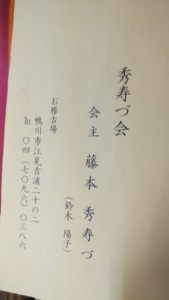 秀寿づ会
会主 藤本 秀寿づ
(鈴木 陽子)
お稽古場
鴨川市江見吉浦二十の二
℡ 〇四(七〇九六)〇三八六